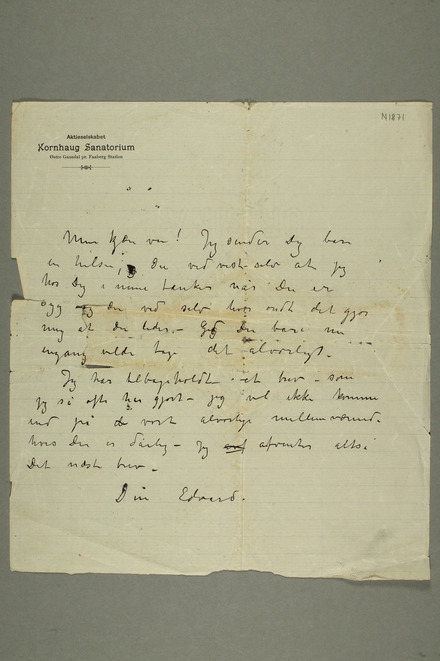 N 1871
Aktieselskabet
Kornhaug Sanatorium
Østre Gausdal pr. Faaberg Station
Min kjære ven! Jeg sender Dig bare
en hilsen, Du ved vist selv at jeg
hos Dig i mine tanker når Du er
syg og du ved selv hvor ondt det gjør
mig at Du lider. – Gid Du bare nu
engang vilde tage det alvorligt. –
Jeg har tilbageholdt et brev – som
jeg så ofte har gjort – jeg vil ikke komme
ind på vort alvorlige mellemværende
hvis Du er dårlig – Jeg afventer altså
Dit næste brev –
Din Edvard.